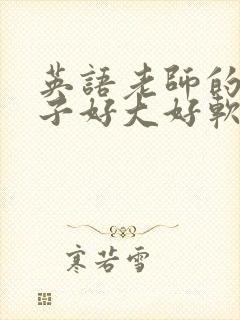 英語老師的
子好大好軟
寒若雪